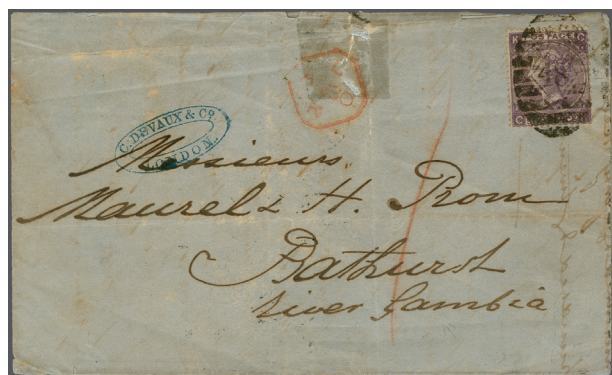 C. DEVAUX & Co.
LONDON.
Messieurs
Maurel & H. Prom
Bathurst
River Gambia